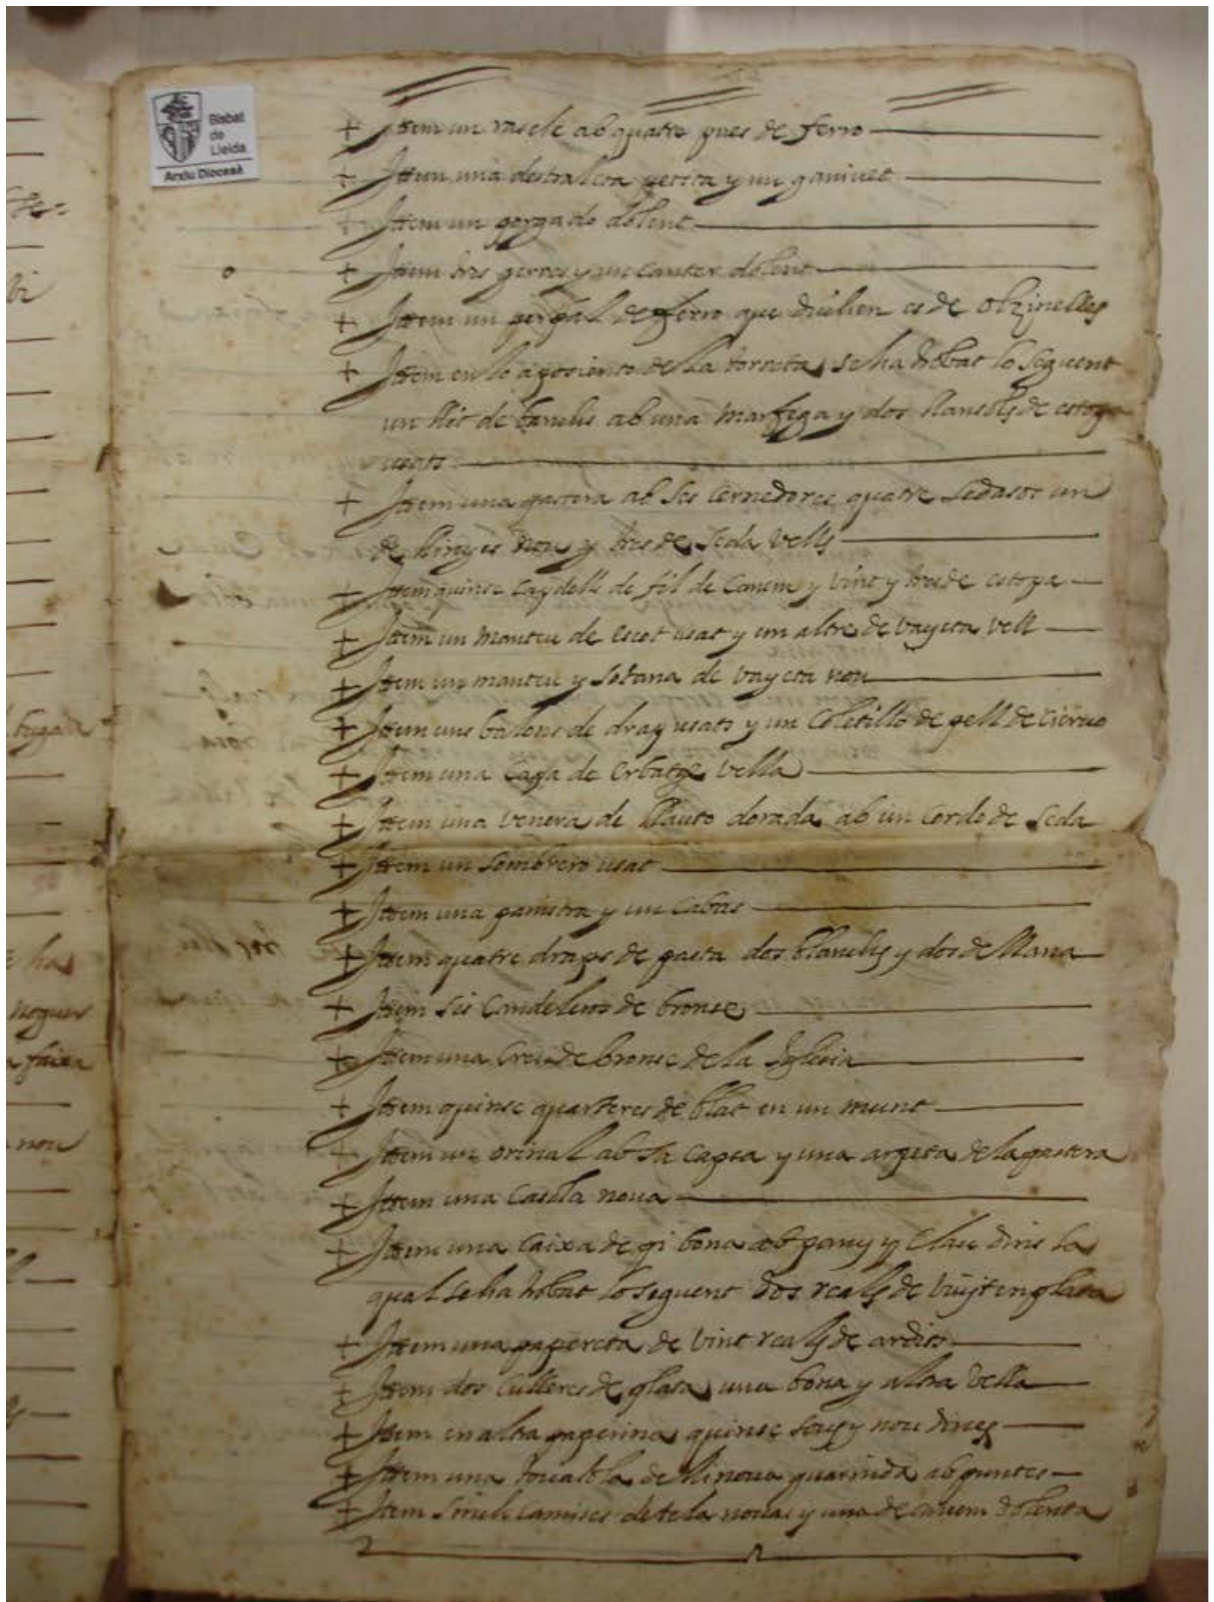 Bisbat
de
Lleida
Arxiu Diocesà
+ Ittem un rascle ab quatre pues de ferro
+ Ittem una destraleta petita y un ganivet
+ Ittem un dolent
+ Ittem tres gerres y un canter dolent
+ Ittem un perpal de ferro que diuhen es de Olzinelles
+ Ittem en lo aposiento de la torreta se ha trobat lo seguent
un llit de banchs ab una marfega y dos llansols de estopa
usats
+ Ittem una pastera ab ses cernedores quatre sedasos un
de nou y tres de seda vells
+ Ittem quinse capdells de fil de canem y vint y tres de estopa
+ Ittem un manteu de escot usat y un altre de bayeta vell
+ Ittem un manteu y sotana de bayeta nou
+ Ittem uns balons de drap usats y un coletillo de pell de ciervo
+ Ittem una capa de erbatge vella
+ Ittem una venera de llauto dorada ab un cordo de seda
+ Ittem un sombrero usat
+ Ittem una panistra y un cabas
+ Ittem quatre draps de pasta dos blanchs y dos de llana
+ Ittem sis candeleros de bronse
+ Ittem una creu de bronse de la Iglesia
+ Ittem quinse quarteres de blat en un munt
+ Ittem un orinal ab sa capsa y una de la pastera
+ Ittem una casola nova
+ Ittem una caixa de pi bona ab pany y clau dins la
qual se ha trobat lo seguent dos reals de vuyt en plata
+ Ittem una papereta de vint reals de ardits
+ Ittem dos culleres de plata una bona y altra vella
+ Ittem en altra paperina quinse sous y nou dines
+ Ittem una tovallola de lli nova guarnida ab puntes
+ Ittem sinch camises de tela novas y una de canem dolenta